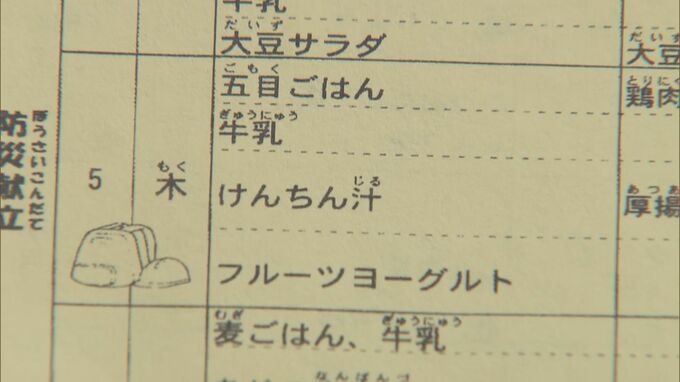 牛乳
だいず
大豆サラダ
だいず
大豆
ごもく
五目ごはん
とりにく
鶏肉
ぎゅうにゅう
牛乳
ぼうさいこんだて
防災献立
5
もく
木
じる
けんちん汁
あつあ
厚揚
フルーツヨーグルト
むぎ ぎゅうにゅう
麦ごはん、牛乳